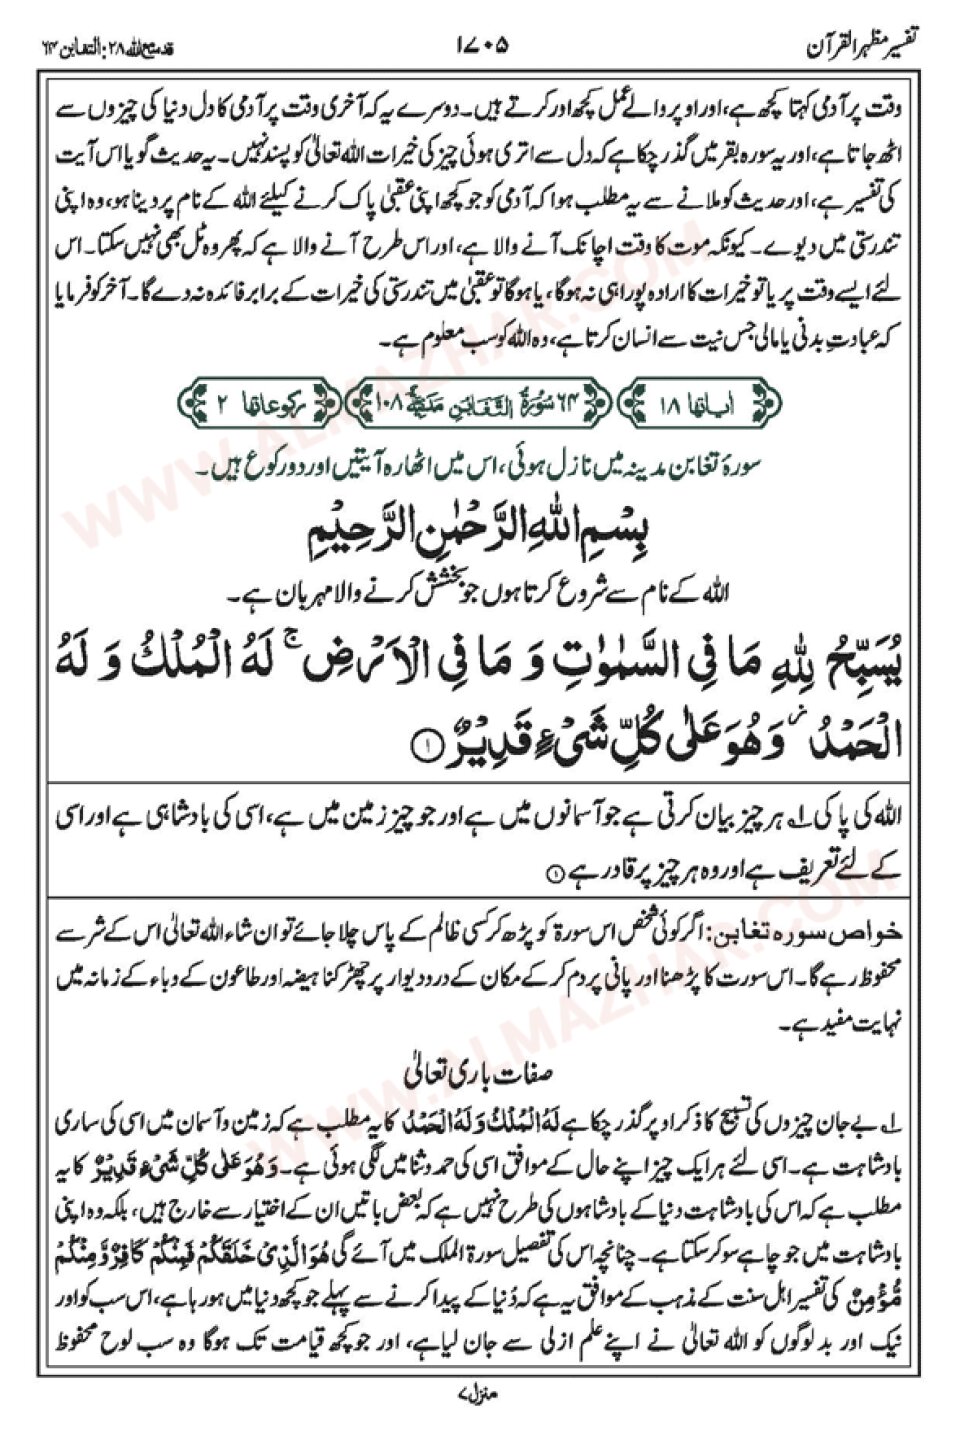 تفسیر مظہر القرآن
۱۷۰۵
قد سمع اللہ ۲۸: التغابن ۶۴
وقت پر آدمی کہتا کچھ ہے، اور اوپر والے عمل کچھ اور کرتے ہیں۔ دوسرے یہ کہ آخری وقت پر آدمی کا دل دنیا کی چیزوں سے
اٹھ جاتا ہے، اور یہ سورہ بقر میں گذر چکا ہے کہ دل سے اتری ہوئی چیز کی خیرات اللہ تعالیٰ کو پسند نہیں۔ یہ حدیث گویا اس آیت
کی تفسیر ہے، اور حدیث کو ملانے سے یہ مطلب ہوا کہ آدمی کو جو کچھ اپنی عقبیٰ پاک کرنے کیلئے اللہ کے نام پر دینا ہو، وہ اپنی
تندرستی میں دیوے۔ کیونکہ موت کا وقت اچانک آنے والا ہے، اور اس طرح آنے والا ہے کہ پھر وہ ٹل بھی نہیں سکتا۔ اس
لئے ایسے وقت پر یا تو خیرات کا ارادہ پورا ہی نہ ہوگا، یا ہوگا تو عقبیٰ میں تندرستی کی خیرات کے برابر فائدہ نہ دے گا۔ آخر کو فرمایا
کہ عبادتِ بدنی یا مالی جس نیت سے انسان کرتا ہے، وہ اللہ کو سب معلوم ہے۔
اٰیاتها ۱۸
۶۴ سُوْرَۃُ التَّغَابُنِ مَدَنِیَّۃٌ ۱۰۸
رکوعاتها ۲
سورۂ تغابن مدینہ میں نازل ہوئی، اس میں اٹھارہ آیتیں اور دو رکوع ہیں۔
بِسْمِ اللهِ الرَّحْمٰنِ الرَّحِيْمِ
اللہ کے نام سے شروع کرتا ہوں جو بخشش کرنے والا مہربان ہے۔
يُسَبِّحُ لِلّٰهِ مَا فِي السَّمٰوٰتِ وَ مَا فِي الْاَرْضِ ۚ لَهُ الْمُلْكُ وَ لَهُ
الْحَمْدُ ۡ وَهُوَ عَلٰى كُلِّ شَيْءٍ قَدِيْرٌ ①
اللہ کی پاکی ۱؎ ہر چیز بیان کرتی ہے جو آسمانوں میں ہے اور جو چیز زمین میں ہے، اسی کی بادشاہی ہے اور اسی
کے لئے تعریف ہے اور وہ ہر چیز پر قادر ہے ①
خواص سورہ تغابن: اگر کوئی شخص اس سورۃ کو پڑھ کر کسی ظالم کے پاس چلا جائے تو ان شاء اللہ تعالیٰ اس کے شر سے
محفوظ رہے گا۔ اس سورت کا پڑھنا اور پانی پر دم کر کے مکان کے در و دیوار پر چھڑکنا ہیضہ اور طاعون کے وباء کے زمانہ میں
نہایت مفید ہے۔
صفات باری تعالیٰ
۱؎ بے جان چیزوں کی تسبیح کا ذکر اوپر گذر چکا ہے لَهُ الْمُلْكُ وَلَهُ الْحَمْدُ کا یہ مطلب ہے کہ زمین و آسمان میں اسی کی ساری
بادشاہت ہے۔ اسی لئے ہر ایک چیز اپنے حال کے موافق اسی کی حمد و ثنا میں لگی ہوئی ہے۔ وَهُوَ عَلٰى كُلِّ شَيْءٍ قَدِيْرٌ کا یہ
مطلب ہے کہ اس کی بادشاہت دنیا کے بادشاہوں کی طرح نہیں ہے کہ بعض باتیں ان کے اختیار سے خارج ہیں، بلکہ وہ اپنی
بادشاہت میں جو چاہے سو کر سکتا ہے۔ چنانچہ اس کی تفصیل سورۃ الملک میں آئے گی هُوَ الَّذِيْ خَلَقَكُمْ فَمِنْكُمْ كَافِرٌ وَّمِنْكُمْ
مُّؤْمِنٌ کی تفسیر اہل سنت کے مذہب کے موافق یہ ہے کہ دُنیا کے پیدا کرنے سے پہلے جو کچھ دنیا میں ہو رہا ہے، اس سب کو اور
نیک اور بد لوگوں کو اللہ تعالیٰ نے اپنے علم ازلی سے جان لیا ہے، اور جو کچھ قیامت تک ہوگا وہ سب لوح محفوظ
منزل ۷
WWW.ALMAZHAR.COM
WWW.ALMAZHAR.COM